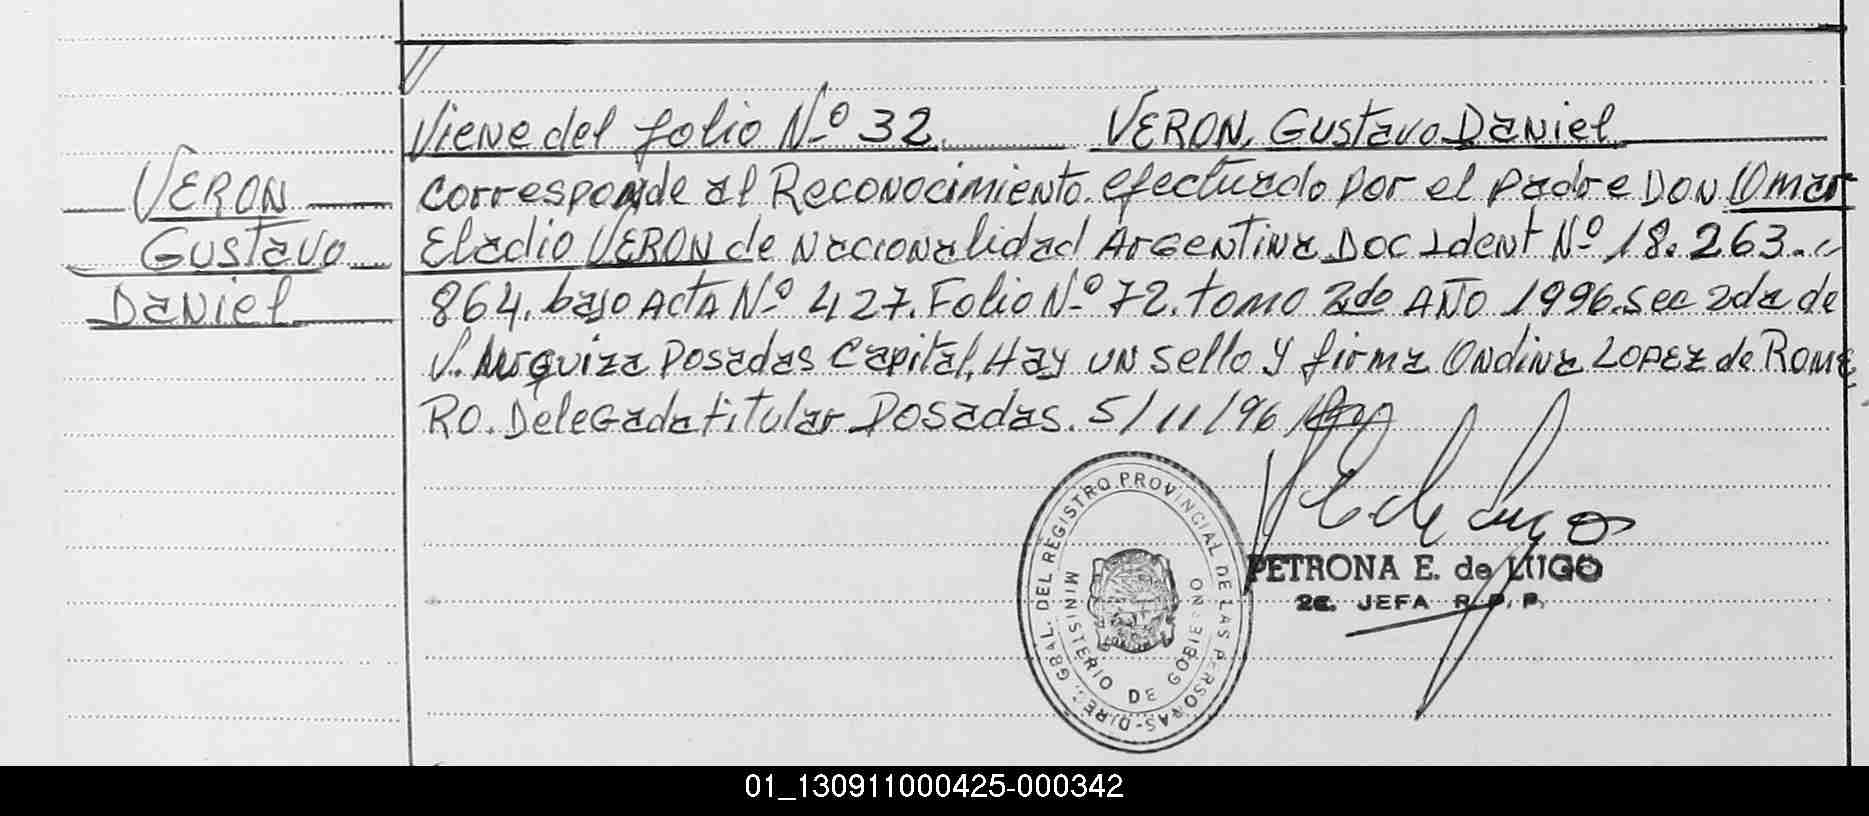 Viene del folio Nº 32. VERON, Gustavo Daniel
VERON
Gustavo
Daniel
corresponde al Reconocimiento efectuado por el padre DON Omar
Eladio VERON de nacionalidad Argentina Doc Ident Nº 18.263.
864. bajo Acta Nº 427. Folio Nº 72. tomo 2do AÑO 1996. sec 2da de
V. Urquiza Posadas Capital, Hay un sello y firma Ondina Lopez de Rome
RO. Delegada titular Posadas. 5/11/96
DIREC. GRAL. DEL REGISTRO PROVINCIAL DE LAS PERSONAS-
MINISTERIO DE GOBIERNO
PETRONA E. de LUGO
2a. JEFA R.P.P.
01_130911000425-000342